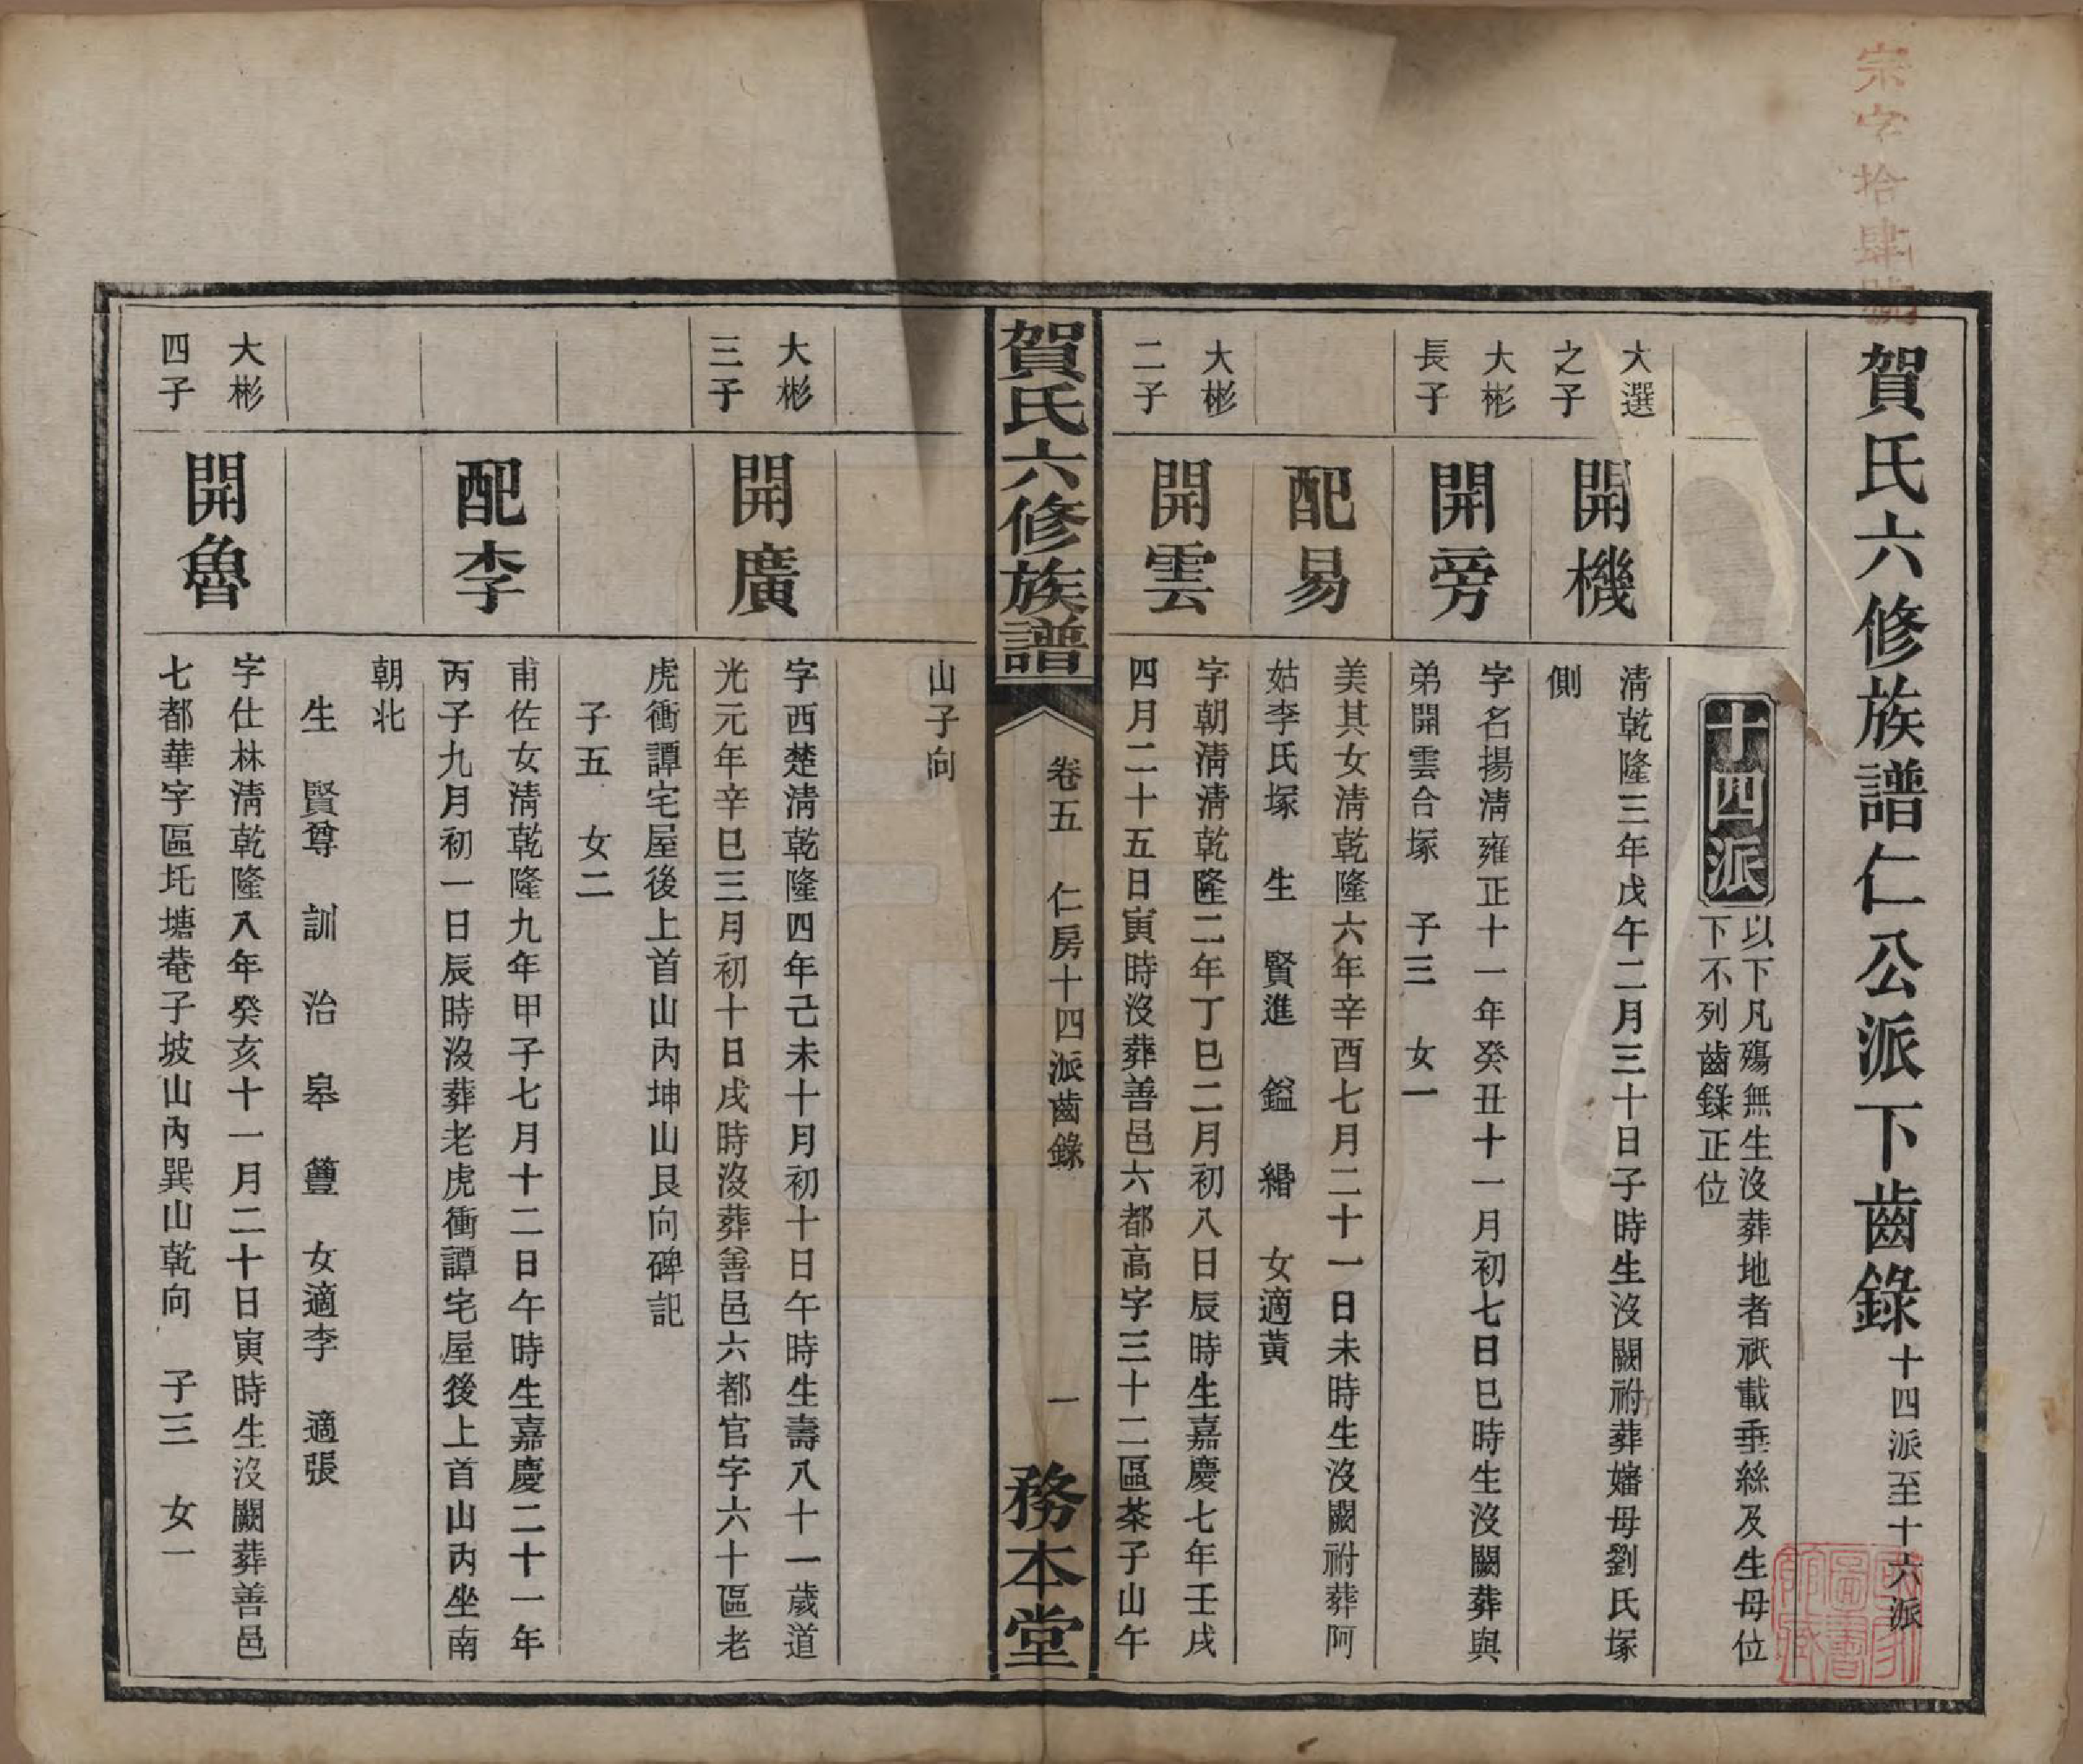 宗字拾肆號
賀氏六修族譜仁公派下齒錄十四派至十六派
十四派
以下凡殤無生沒葬地者祇載垂絲及生母位
下不列齒錄正位
大選
之子
開機
清乾隆三年戊午二月三十日子時生沒闕祔葬嬸母劉氏塚
側
大彬
長子
開旁
字名揚清雍正十一年癸丑十一月初七日巳時生沒闕葬與
弟開雲合塚 子三 女一
配易
美其女清乾隆六年辛酉七月二十一日未時生沒闕祔葬阿
姑李氏塚 生 賢進 鎰 緡 女適黃
大彬
二子
開雲
字朝清清乾隆二年丁巳二月初八日辰時生嘉慶七年壬戌
四月二十五日寅時沒葬善邑六都高字三十二區茶子山午
賀氏六修族譜
卷五 仁房十四派齒錄
一
務本堂
山子向
大彬
三子
開廣
字西楚清乾隆四年己未十月初十日午時生壽八十一歲道
光元年辛巳三月初十日戌時沒葬善邑六都官字六十區老
虎衝譚宅屋後上首山內坤山艮向碑記
子五 女二
配李
甫佐女清乾隆九年甲子七月十二日午時生嘉慶二十一年
丙子九月初一日辰時沒葬老虎衝譚宅屋後上首山內坐南
朝北
生 賢尊 訓 治 皋 籩 女適李 適張
大彬
四子
開魯
字仕林清乾隆八年癸亥十一月二十日寅時生沒闕葬善邑
七都華字區圫塘菴子坡山內巽山乾向 子三 女一